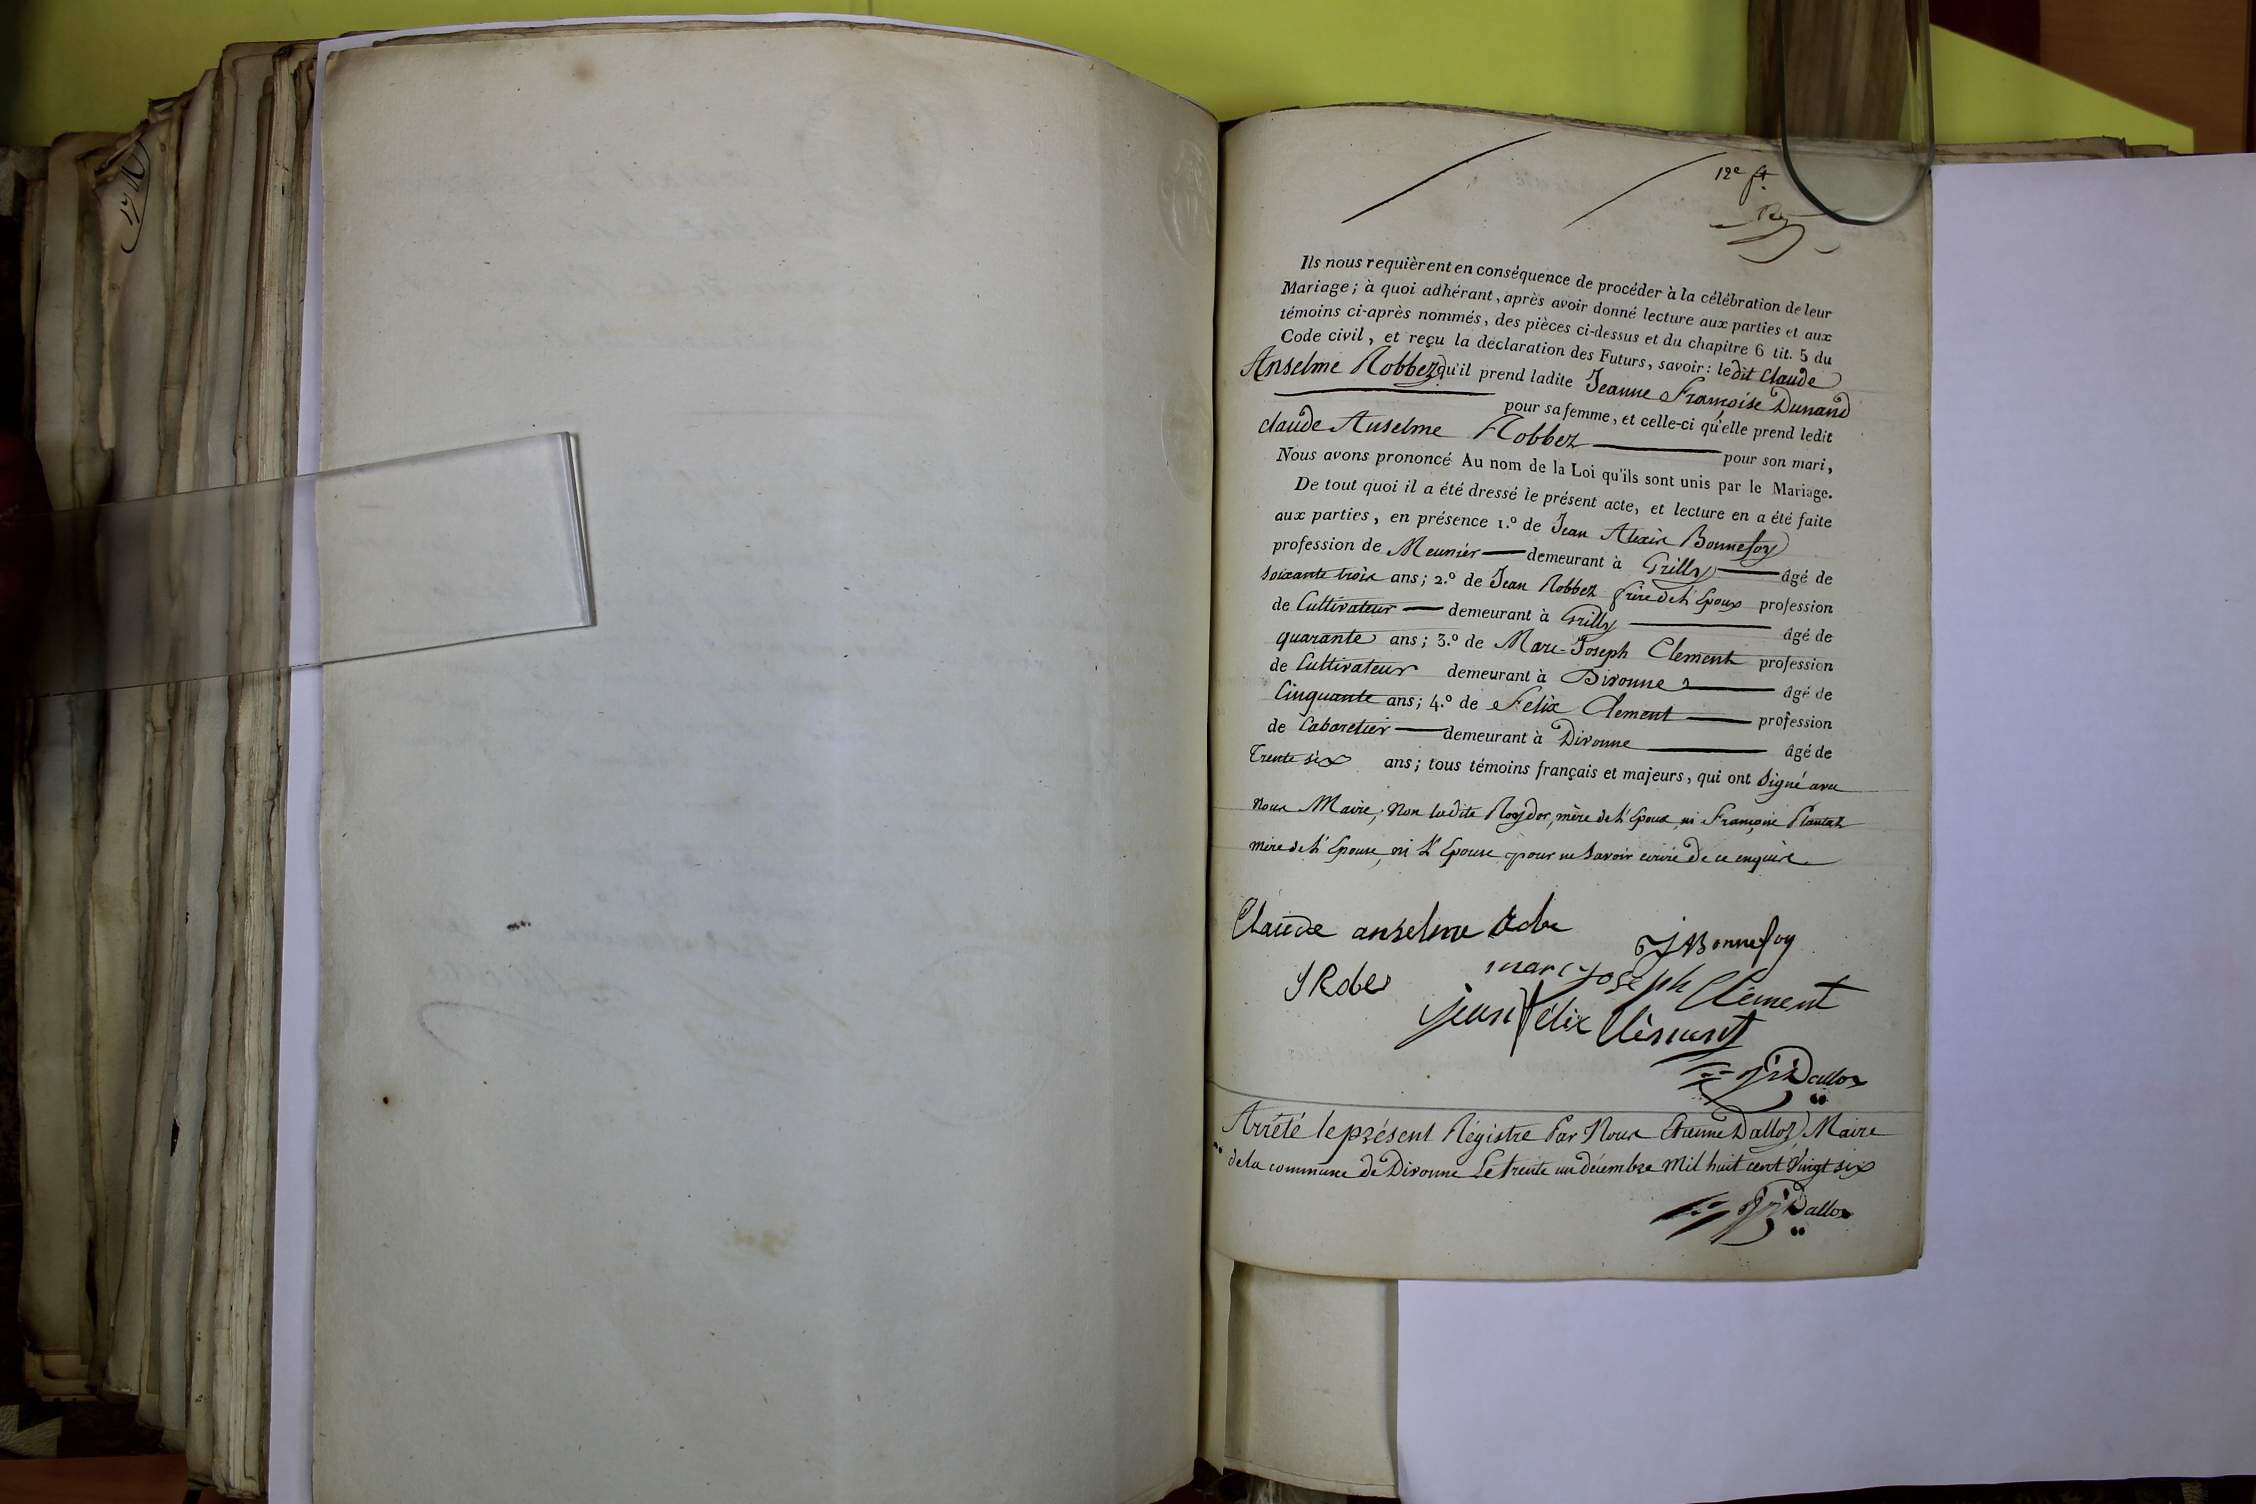 12e ft.
Ils nous requièrent en conséquence de procéder à la célébration de leur
Mariage; à quoi adhérant, après avoir donné lecture aux parties et aux
témoins ci-après nommés, des pièces ci-dessus et du chapitre 6 tit. 5 du
Code civil, et reçu la déclaration des Futurs, savoir: ledit Claude
Anselme Robbez qu'il prend ladite Jeanne Françoise Dunand
pour sa femme, et celle-ci qu'elle prend ledit
Claude Anselme Robbez pour son mari,
Nous avons prononcé Au nom de la Loi qu'ils sont unis par le Mariage.
De tout quoi il a été dressé le présent acte, et lecture en a été faite
aux parties, en présence 1.º de Jean Alexis Bonnefoy
profession de Meunier demeurant à Grilly âgé de
soixante trois ans; 2.º de Jean Robbez frère de l'Epoux profession
de Cultivateur demeurant à Grilly âgé de
quarante ans; 3.º de Marc-Joseph Clement profession
de Cultivateur demeurant à Divonne âgé de
Cinquante ans; 4.º de Felix Clement profession
de Cabaretier demeurant à Divonne âgé de
Trente six ans; tous témoins français et majeurs, qui ont signé avec
nous Maire, Non ladite Roydor, mère de l'Epoux, ni Françoise
mère de l'Epouse, ni l'Epouse pour ne savoir écrire de ce enquise
Claude anselme
J Bonnefoy
J Robe
marc joseph Clément
jean félix Clément
Dalloz
Arrêté le présent Régistre Par Nous Etienne Dalloz, Maire
de la commune de Divonne Le trente un décembre Mil huit cent Vingt six
Dalloz